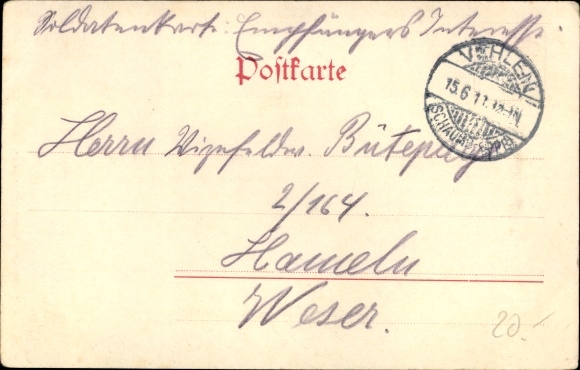 Soldatenkarte. Empfängers Interesse.
Postkarte
VEHLEN
15.6.11.
SCHAUMB.-LIPPE
Herrn Vizefeldw.
2/164.
Hameln
Weser.
20.-